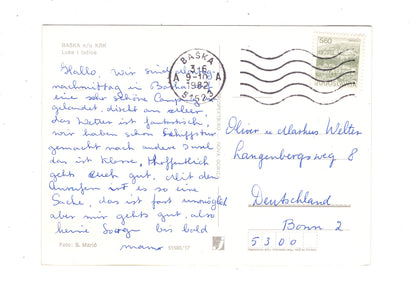 BAŠKA n/o KRK
Luka i tašice
Hallo, wir sind
nachmittag in Baška
eine sehr schöne Camping
gelandet, direkt am
das Wetter ist fantastisch,
wir haben schon Schiffstur
gemacht nach andere Insel
das ist Klasse. Hoffentlich
gehts Euch gut. Mit den
Anrufen ist es so eine
Sache, das ist fast unmöglich
aber mir gehts gut, also
keine Sorgen bis bald
mama
Foto: B. Marić
BAŠKA
3.6
9-10
1982
A A
51523
560
JUGOSLAVIJA
Oliver u Markus Welter
Langenbergsweg 8
Deutschland
Bonn 2
5300